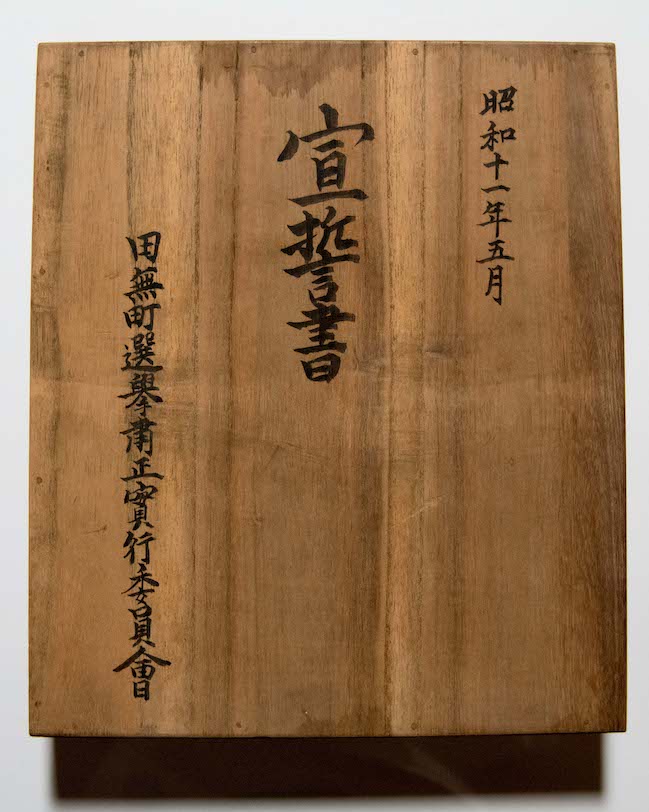 昭和十一年五月
宣誓書
田無町選擧肅正實行委員會